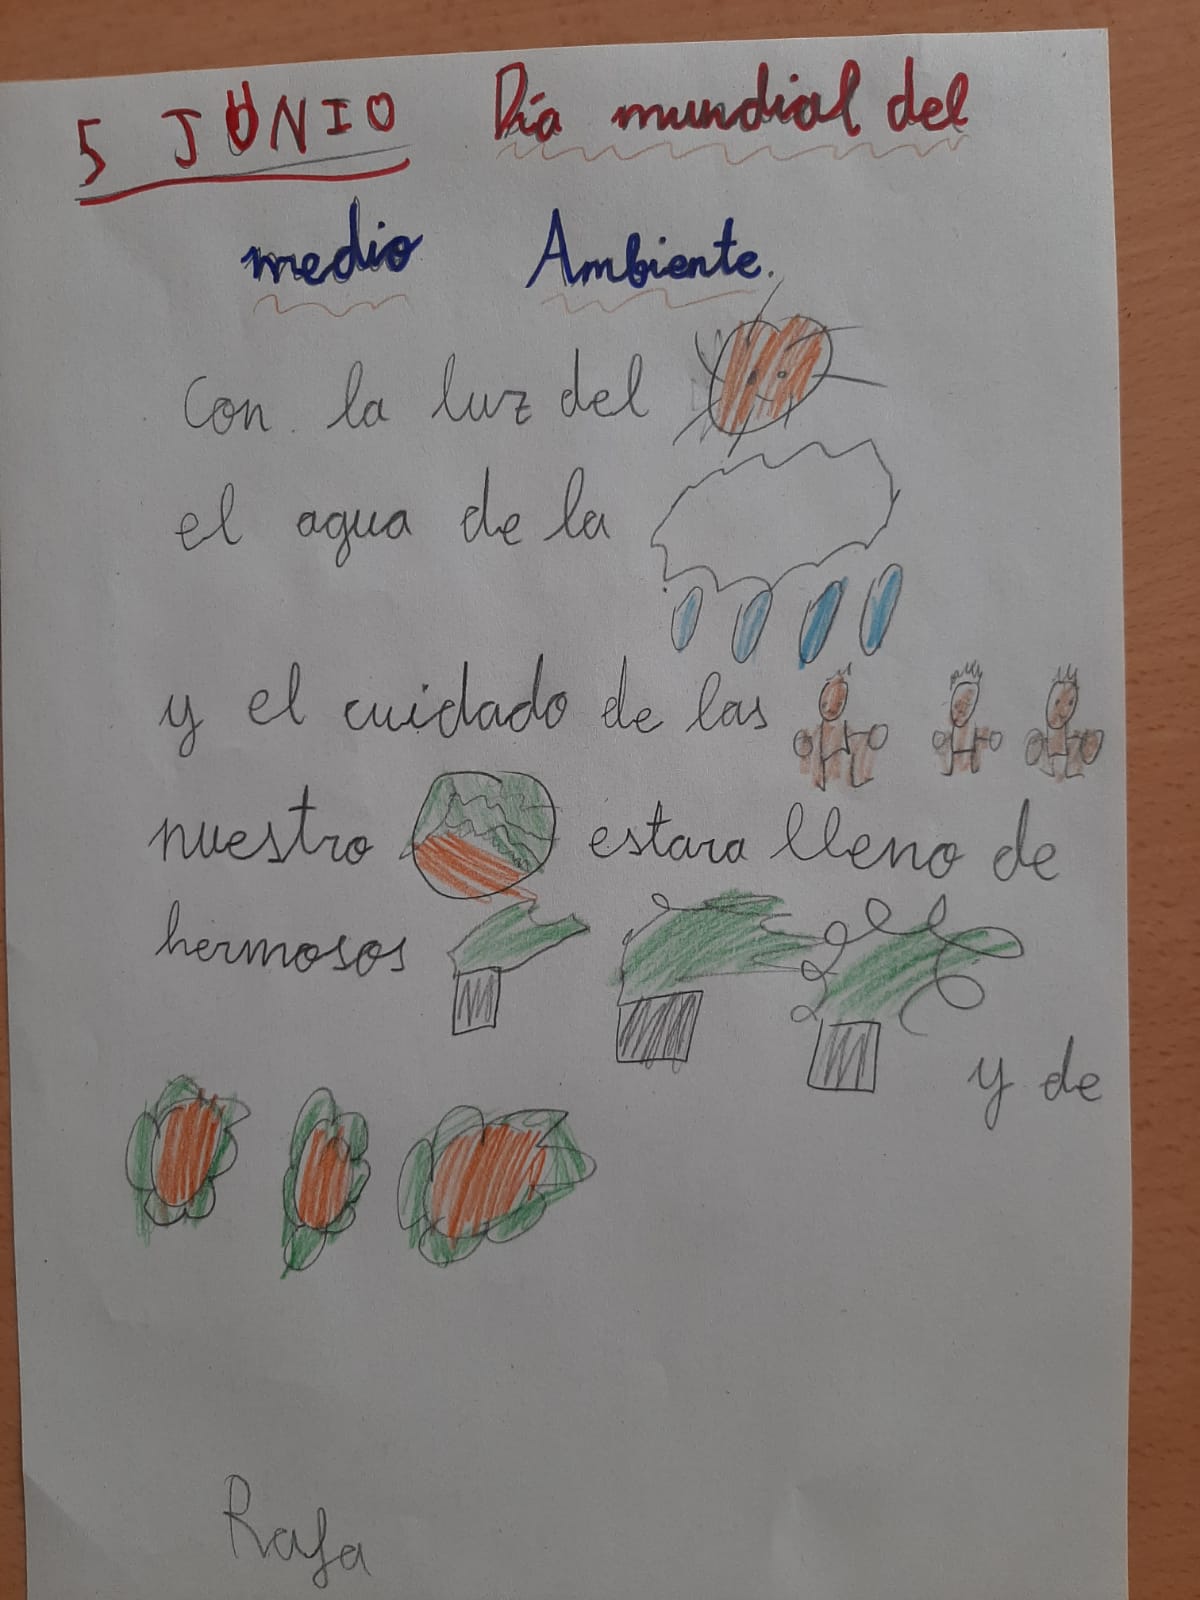 5 JUNIO Día mundial del
medio Ambiente.
Con la luz del
el agua de la
y el cuidado de las
nuestro estara lleno de
hermosos
y de
Rafa